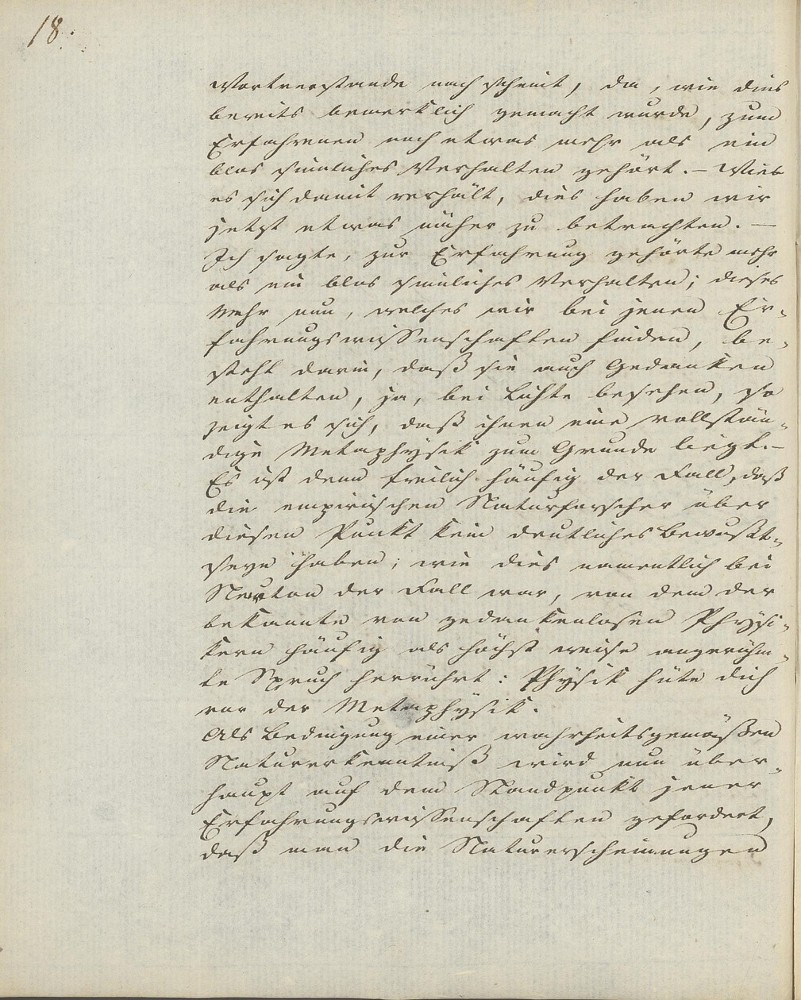 18.
Wortverstande nach scheint, da, wie dies
bereits bemerklich gemacht wurde, zum
Erfahrenen noch etwas mehr als ein
blos sinnliches Verhalten gehört. – Wie
es sich damit verhält, dies haben wir
jetzt etwas näher zu betrachten. –
Ich sagte, zur Erfahrung gehörte mehr
als ein blos sinnliches Verhalten; dieses
Mehr nun, welches wir bei jenen Er-
fahrungswissenschaften finden, be-
steht darin, daß sie auch Gedanken
enthalten, ja, bei Lichte besehen, so
zeigt es sich, daß ihnen eine vollstän-
dige Metaphysik zum Grunde liegt. –
Es ist denn freilich häufig der Fall, daß
die empirischen Naturforscher über
diesen Punkt kein deutliches Bewußt-
seyn haben; wie dies namentlich bei
Neuton der Fall war, von dem der
bekannte von gedankenlosen Physi-
kern häufig als höchst weise angerühm-
te Spruch herrührt: Physik hüte dich
vor der Metaphysik.
Als Bedingung einer wahrheitsgemäßen
Naturerkenntniß wird nun über-
haupt auf dem Standpunkt jener
Erfahrungswissenschaften gefordert,
daß man die Naturerscheinungen